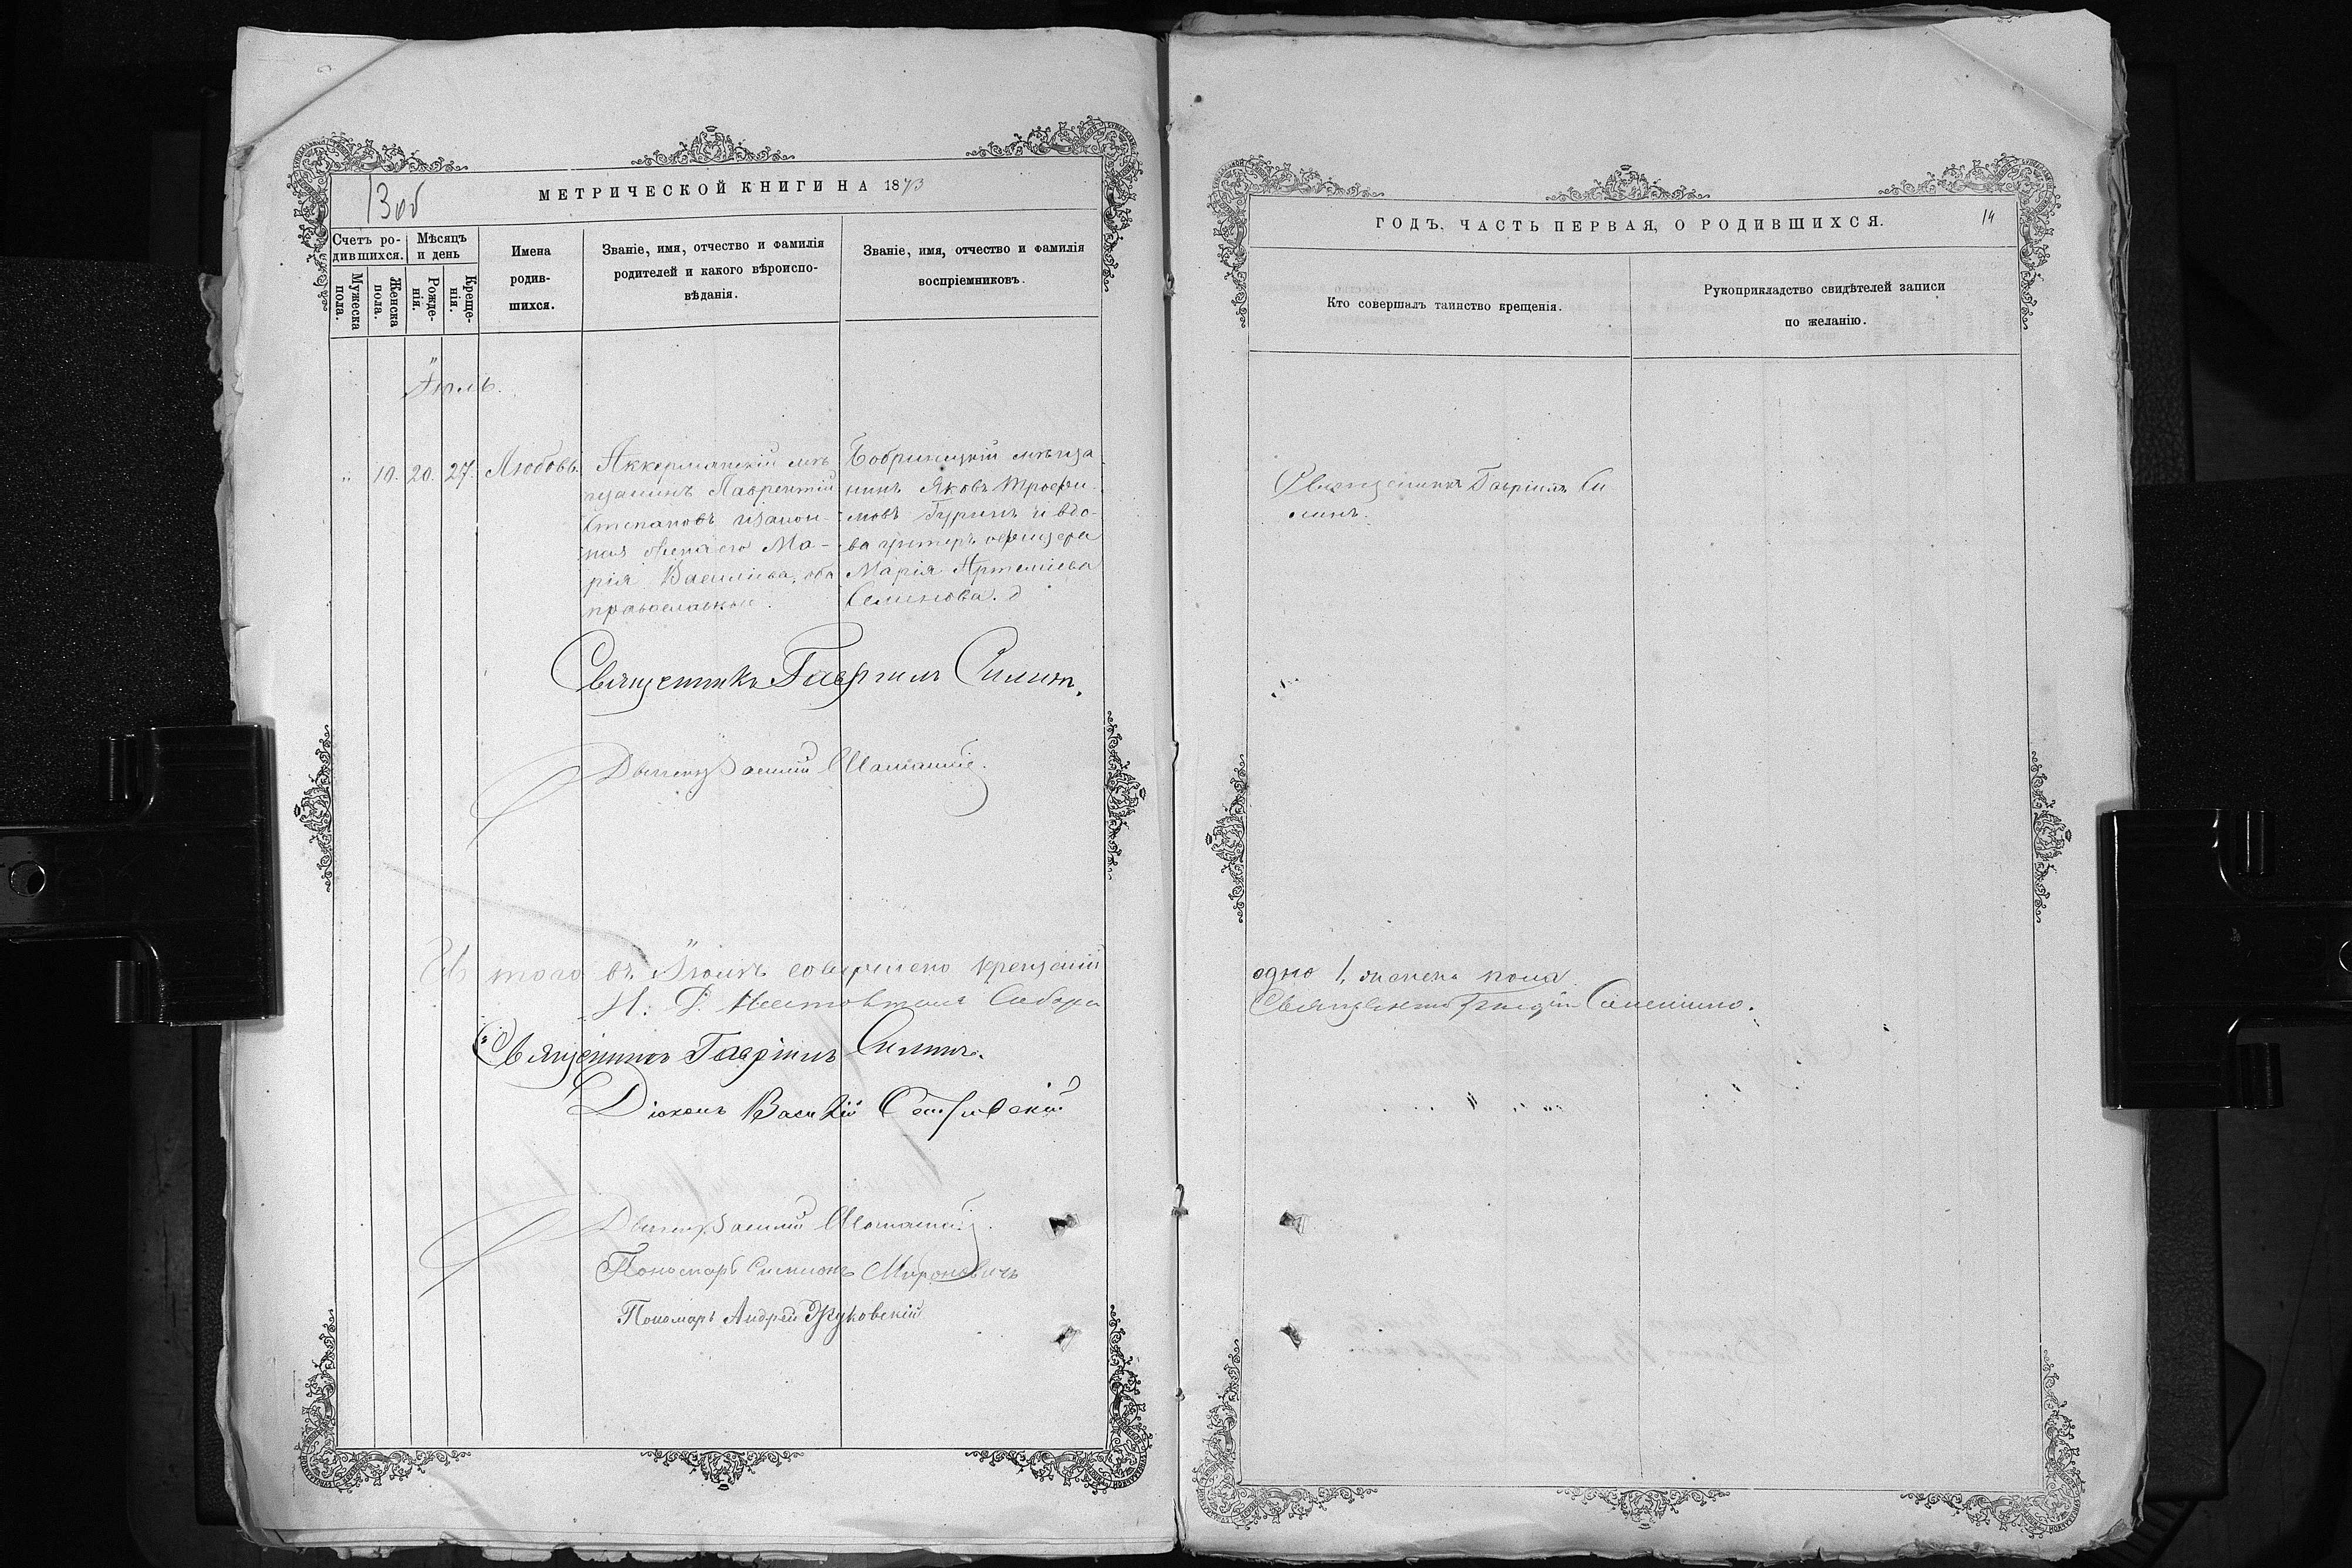 13 об
МЕТРИЧЕСКОЙ КНИГИ НА 1873
Счетъ ро-
дившихся.
Мѣсяцъ
и день
Мужеска
пола.
Женска
пола.
Рожде-
нія.
Креще-
нія.
Имена
родив-
шихся.
Званіе, имя, отчество и фамилія
родителей и какого вѣроиспо-
вѣданія.
Званіе, имя, отчество и фамилія
воспріемниковъ.
Іюль.
" 10. 20. 27. Любовь.
Аккерманскій мѣ
щанинъ Лаврентій
Степановъ и закон-
ная жена его Ма-
рія Васильева, оба
православные.
Бобринецкій мѣща
нинъ Яковъ Трофи-
мовъ Гуринъ и вдо-
ва унтеръ офицера
Марія Артеміева
Семенова.
Священникъ Гавріилъ Силинъ.
Василій
того въ Іюлѣ совершено крещеній
Собора
Священникъ Гавріилъ Силинъ.
Діаконъ Василій
Василій
Пономарь Симеонъ Мироновичъ
Пономарь Андрей Жуковскій
ГОДЪ, ЧАСТЬ ПЕРВАЯ, О РОДИВШИХСЯ.
14
Кто совершалъ таинство крещенія.
Рукоприкладство свидѣтелей записи
по желанію.
Священникъ Гавріилъ Си
линъ.
одно 1, женска пола.